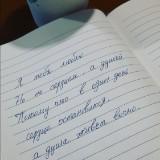 Я тебя люблю
Но не сердцем а душой
Потому что в один день
сердце остановится
а душа живет вечно.